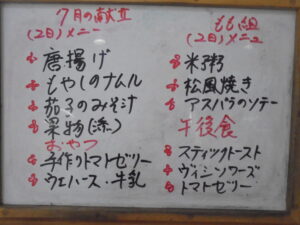 7月の献立
(2日)メニュー
唐揚げ
もやしのナムル
茄子のみそ汁
果物(浜)
おやつ
手作りトマトゼリー
ウエハース・牛乳
もも組
(2日)メニュー
米粥
松風焼き
アスパラのソテー
午後食
スティックトースト
ヴィシソワーズ
トマトゼリー